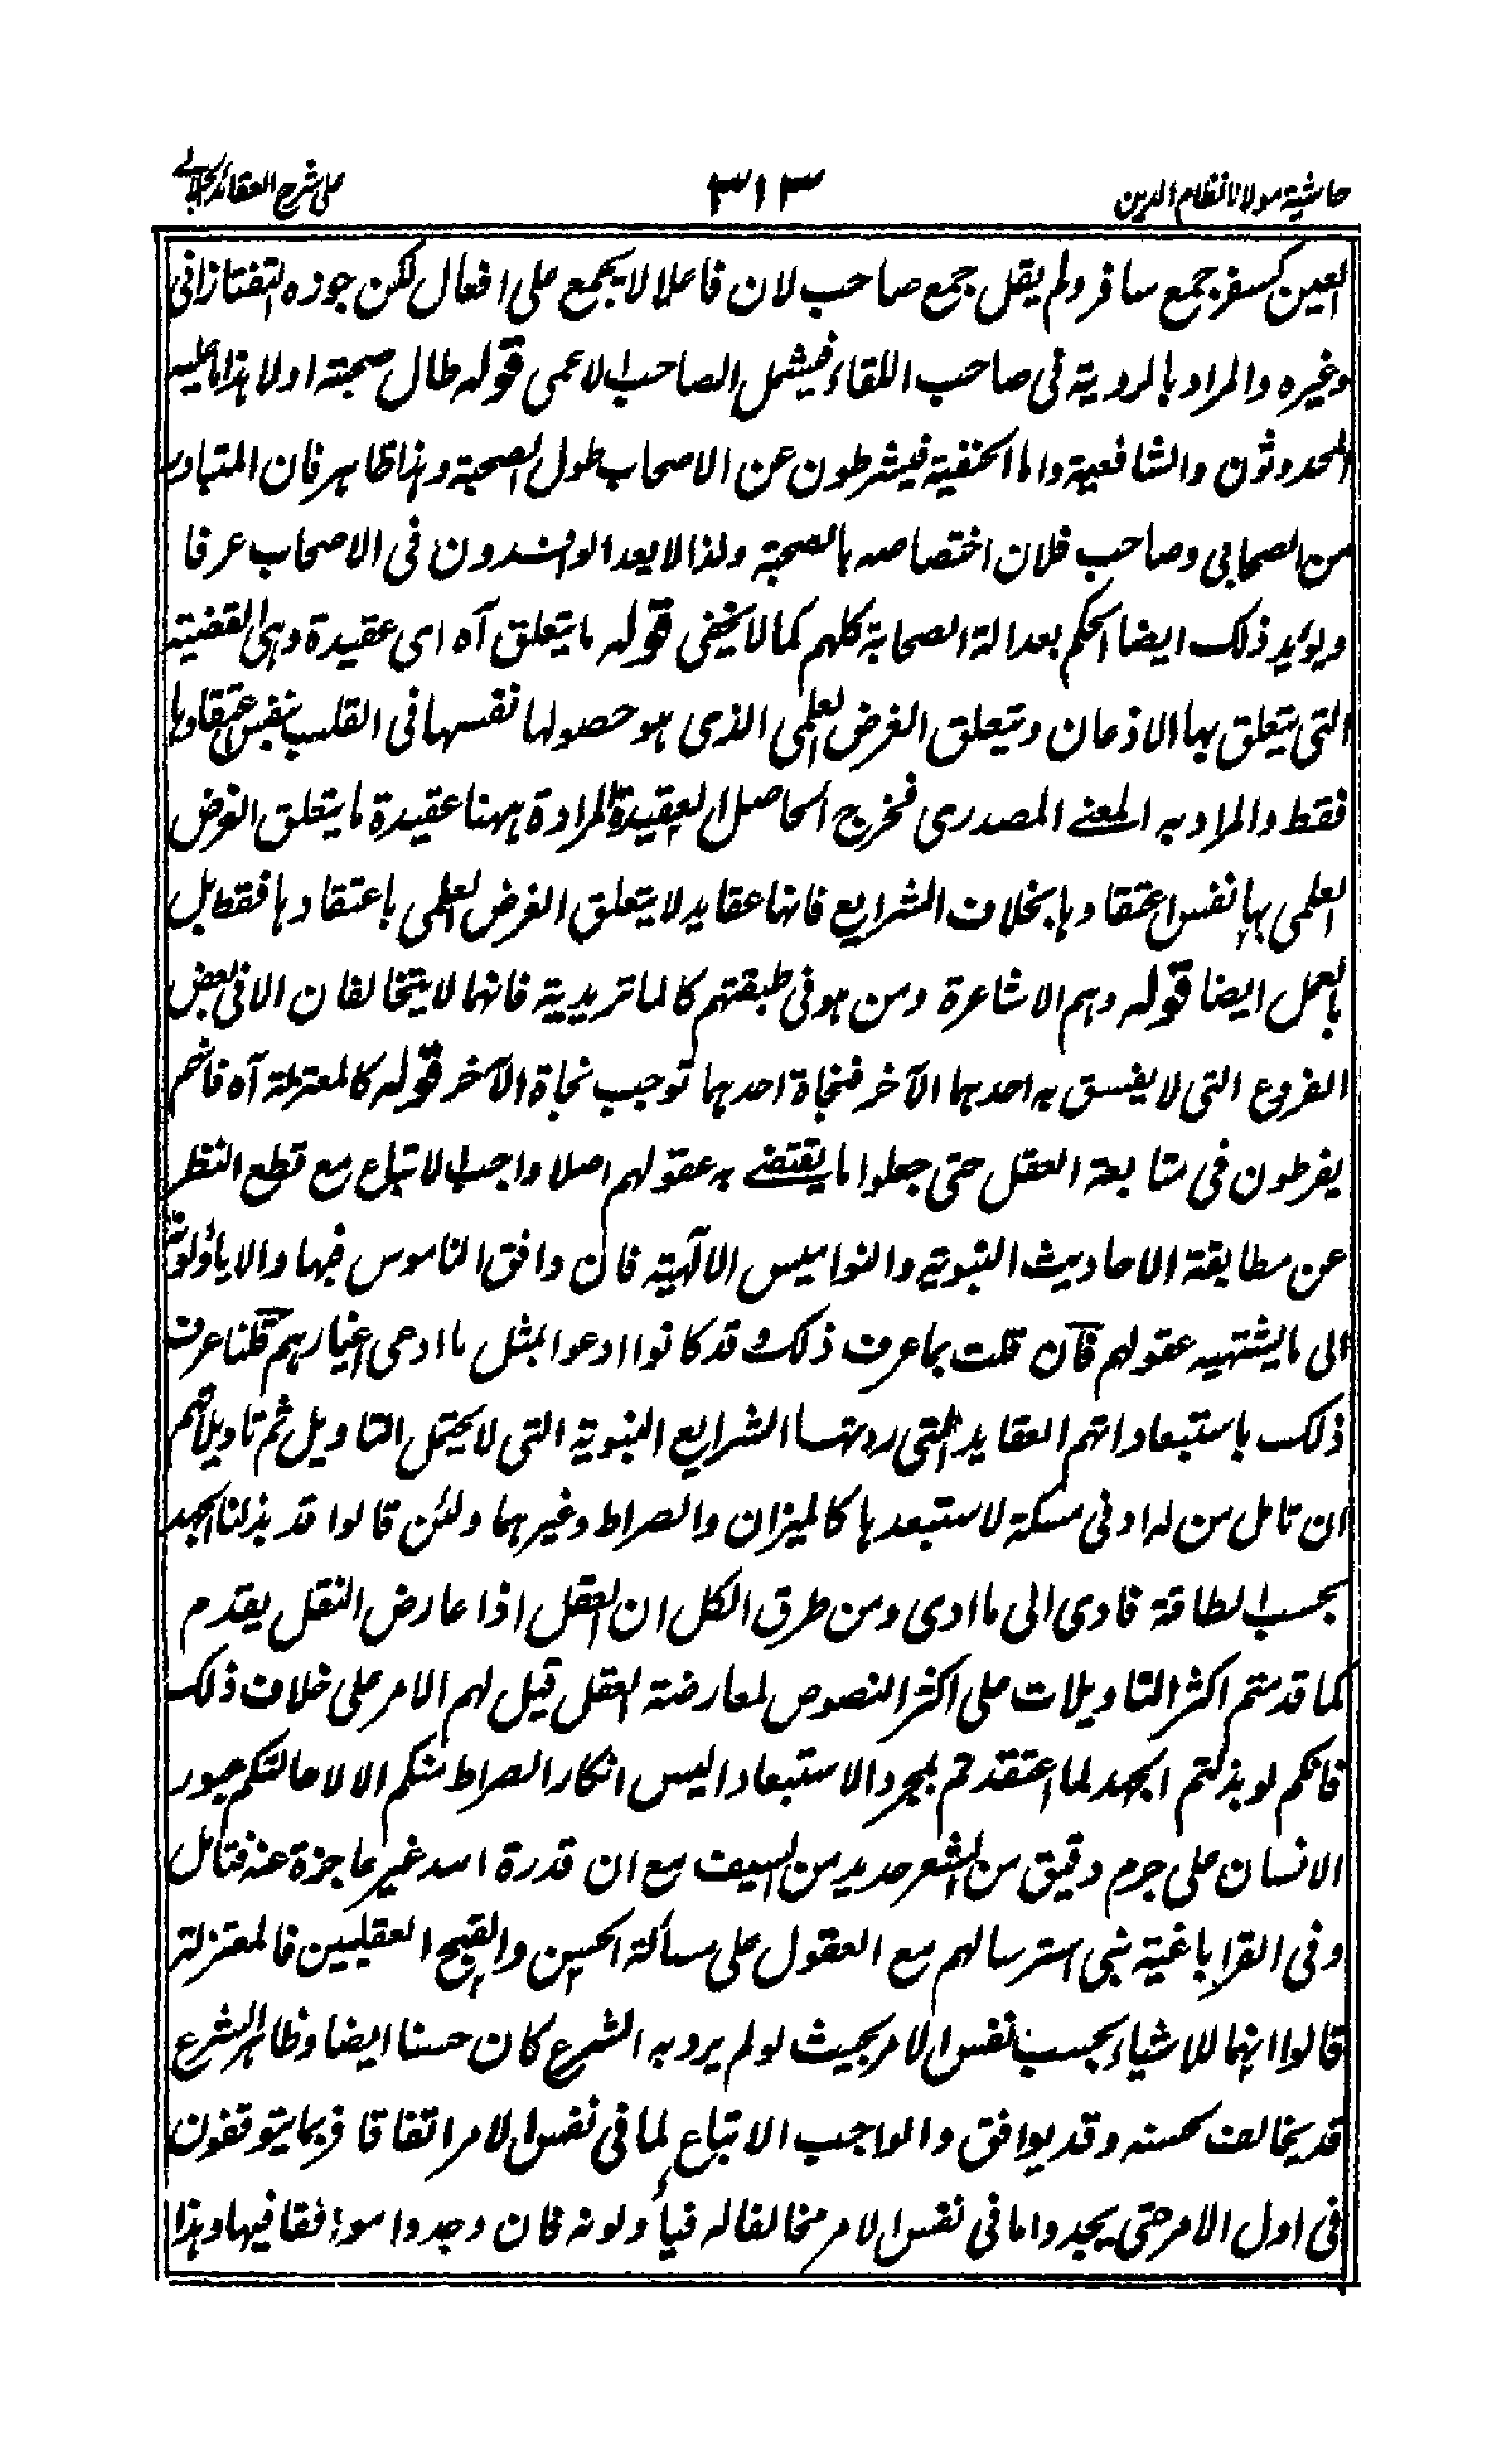 حاشیة مولانا نظام الدین ٣١٣ على شرح العقائد الجلالي
العين كسفر جمع سافر ولم يقل جمع صاحب لان فاعلا لا يجمع على افعال لكن جوزه التفتازانى
وغيره والمراد بالروية فى صاحب اللقاء فيشمل الصاحب الاعمى قوله طال صحبته اولا هذا ما عليه
المحدوثون والشافعية واما الحنفية فيشرطون عن الاصحاب طول الصحبة وهذا ظاهر فان المتبادر
من الصحابى وصاحب فلان اختصاصه بالصحبة ولذا لا يعد الوافدون فى الاصحاب عرفا
ويؤيد ذلك ايضا الحكم بعدالة الصحابة كلهم كما لا يخفى قوله ما يتعلق آه اى عقيدة وهى القضية
التى يتعلق بها الاذعان ويتعلق الغرض العلمى الذى هو حصولها نفسها فى القلب بنفس اعتقادها
فقط والمراد به المعنے المصدرى فخرج الحاصل ان العقيدة المرادة ههنا عقيدة ما يتعلق الغرض
العلمى بها بنفس اعتقادها بخلاف الشرايع فانها عقايد لا يتعلق الغرض العلمى باعتقادها فقط بل
بالعمل ايضا قوله وهم الاشاعرة ومن هو فى طبقتهم كالماتريدية فانهما لا يتخالفان الا فى بعض
الفروع التى لا يفسق به احدهما الآخر فنجاة احدهما توجب نجاة الآخر قوله كالمعتزلة آه فانهم
يفرطون فى متابعة العقل حتى جعلوا ما يقتضے به عقولهم اصلا واجب الاتباع مع قطع النظر
عن مطابقة الاحاديث النبوية والنواميس الالٓهية فان وافق الناموس فبها والا ياؤلونه
الى ما يشتهيه عقولهم فان قلت بما عرف ذلك وقد كانوا ادعوا بمثل ما ادعى اغيارهم قلنا عرف
ذلك باستبعاداتهم العقايد التى ردتها الشرايع النبوية التى لا يحتمل التاويل ثم تاويلاتهم
ان تامل من له ادنى مسكة لاستبعدها كالميزان والصراط وغيرهما ولئن قالوا قد بذلنا الجهد
بحسب الطاقة فادى الى ما ادى ومن طرق الكل ان العقل اذا عارض النقل يقدم
كما قدمتم اكثر التاويلات على اكثر النصوص لمعارضة العقل قيل لهم الامر على خلاف ذلك
فانكم لو بذلتم الجهد لما اعتقدتم بمجرد الاستبعاد اليس انكار الصراط منكم الا لاحالتكم عبور
الانسان على جرم دقيق من الشعر حديد من السيف مع ان قدرة الله غير عاجزة عنه فتامل
وفى القراباغية نبى استرسالهم مع العقول على مسألة الحسن والقبح العقليين فالمعتزلة
قالوا انهما للاشياء بحسب نفس الامر بحيث لو لم يرد به الشرع كان حسنا ايضا وظاهر الشرع
قد يخالف حسنه وقد يوافق والواجب الاتباع لما فى نفس الامر اتفاقا فربما يتوقفون
فى اول الامر حتى يجدوا ما فى نفس الامر مخالفا له فيأولونه فان وجدوا موافقا فيها وهذا